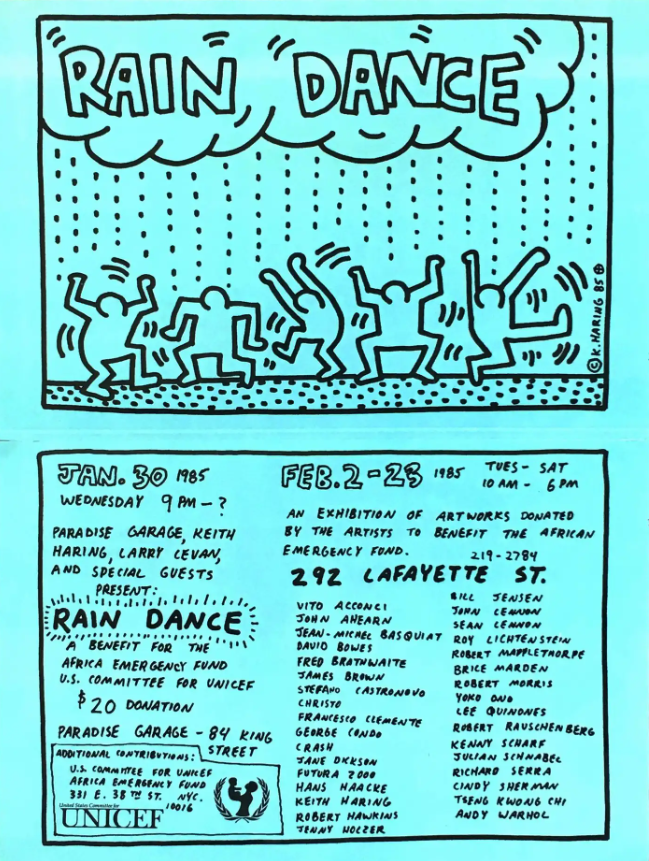 RAIN DANCE
© K. HARING 85
JAN. 30 1985
WEDNESDAY 9 PM - ?
PARADISE GARAGE, KEITH
HARING, LARRY LEVAN,
AND SPECIAL GUESTS
PRESENT:
RAIN DANCE
A BENEFIT FOR THE
AFRICA EMERGENCY FUND
U.S. COMMITTEE FOR UNICEF
$20 DONATION
PARADISE GARAGE - 84 KING
STREET
ADDITIONAL CONTRIBUTIONS:
U.S. COMMITTEE FOR UNICEF
AFRICA EMERGENCY FUND
331 E. 38TH ST. NYC.
10016
United States Committee for
UNICEF
FEB. 2-23 1985 TUES - SAT
10 AM - 6 PM
AN EXHIBITION OF ARTWORKS DONATED
BY THE ARTISTS TO BENEFIT THE AFRICAN
EMERGENCY FUND. 219-2784
292 LAFAYETTE ST.
VITO ACCONCI
JOHN AHEARN
JEAN-MICHEL BASQUIAT
DAVID BOWES
FRED BRATHWAITE
JAMES BROWN
STEFANO CASTRONOVO
CHRISTO
FRANCESCO CLEMENTE
GEORGE CONDO
CRASH
JANE DICKSON
FUTURA 2000
HANS HAACKE
KEITH HARING
ROBERT HAWKINS
JENNY HOLZER
BILL JENSEN
JOHN LENNON
SEAN LENNON
ROY LICHTENSTEIN
ROBERT MAPPLETHORPE
BRICE MARDEN
ROBERT MORRIS
YOKO ONO
LEE QUINONES
ROBERT RAUSCHENBERG
KENNY SCHARF
JULIAN SCHNABEL
RICHARD SERRA
CINDY SHERMAN
TSENG KWONG CHI
ANDY WARHOL